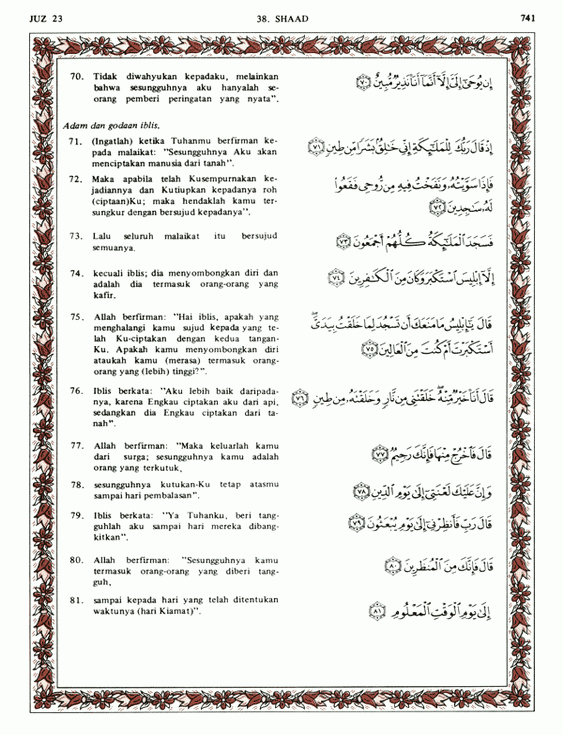 JUZ 23
38. SHAAD
741
70. Tidak diwahyukan kepadaku, melainkan
bahwa sesungguhnya aku hanyalah se-
orang pemberi peringatan yang nyata".
إِن يُوحَىٰٓ إِلَىَّ إِلَّآ أَنَّمَآ أَنَا۠ نَذِيرٌ مُّبِينٌ ﴿٧٠﴾
Adam dan godaan iblis.
71. (Ingatlah) ketika Tuhanmu berfirman ke-
pada malaikat: "Sesungguhnya Aku akan
menciptakan manusia dari tanah".
إِذْ قَالَ رَبُّكَ لِلْمَلَٰٓئِكَةِ إِنِّى خَٰلِقٌۢ بَشَرًا مِّن طِينٍ ﴿٧١﴾
72. Maka apabila telah Kusempurnakan ke-
jadiannya dan Kutiupkan kepadanya roh
(ciptaan)Ku; maka hendaklah kamu ter-
sungkur dengan bersujud kepadanya".
فَإِذَا سَوَّيْتُهُۥ وَنَفَخْتُ فِيهِ مِن رُّوحِى فَقَعُوا۟
لَهُۥ سَٰجِدِينَ ﴿٧٢﴾
73. Lalu seluruh malaikat itu bersujud
semuanya.
فَسَجَدَ ٱلْمَلَٰٓئِكَةُ كُلُّهُمْ أَجْمَعُونَ ﴿٧٣﴾
74. kecuali iblis; dia menyombongkan diri dan
adalah dia termasuk orang-orang yang
kafir.
إِلَّآ إِبْلِيسَ ٱسْتَكْبَرَ وَكَانَ مِنَ ٱلْكَٰفِرِينَ ﴿٧٤﴾
75. Allah berfirman: "Hai iblis, apakah yang
menghalangi kamu sujud kepada yang te-
lah Ku-ciptakan dengan kedua tangan-
Ku. Apakah kamu menyombongkan diri
ataukah kamu (merasa) termasuk orang-
orang yang (lebih) tinggi?".
قَالَ يَٰٓإِبْلِيسُ مَا مَنَعَكَ أَن تَسْجُدَ لِمَا خَلَقْتُ بِيَدَىَّ ۖ
أَسْتَكْبَرْتَ أَمْ كُنتَ مِنَ ٱلْعَالِينَ ﴿٧٥﴾
76. Iblis berkata: "Aku lebih baik daripada-
nya, karena Engkau ciptakan aku dari api,
sedangkan dia Engkau ciptakan dari ta-
nah".
قَالَ أَنَا۠ خَيْرٌ مِّنْهُ ۖ خَلَقْتَنِى مِن نَّارٍ وَخَلَقْتَهُۥ مِن طِينٍ ﴿٧٦﴾
77. Allah berfirman: "Maka keluarlah kamu
dari surga; sesungguhnya kamu adalah
orang yang terkutuk,
قَالَ فَٱخْرُجْ مِنْهَا فَإِنَّكَ رَجِيمٌ ﴿٧٧﴾
78. sesungguhnya kutukan-Ku tetap atasmu
sampai hari pembalasan".
وَإِنَّ عَلَيْكَ لَعْنَتِىٓ إِلَىٰ يَوْمِ ٱلدِّينِ ﴿٧٨﴾
79. Iblis berkata: "Ya Tuhanku, beri tang-
guhlah aku sampai hari mereka dibang-
kitkan".
قَالَ رَبِّ فَأَنظِرْنِىٓ إِلَىٰ يَوْمِ يُبْعَثُونَ ﴿٧٩﴾
80. Allah berfirman: "Sesungguhnya kamu
termasuk orang-orang yang diberi tang-
guh,
قَالَ فَإِنَّكَ مِنَ ٱلْمُنظَرِينَ ﴿٨٠﴾
81. sampai kepada hari yang telah ditentukan
waktunya (hari Kiamat)".
إِلَىٰ يَوْمِ ٱلْوَقْتِ ٱلْمَعْلُومِ ﴿٨١﴾